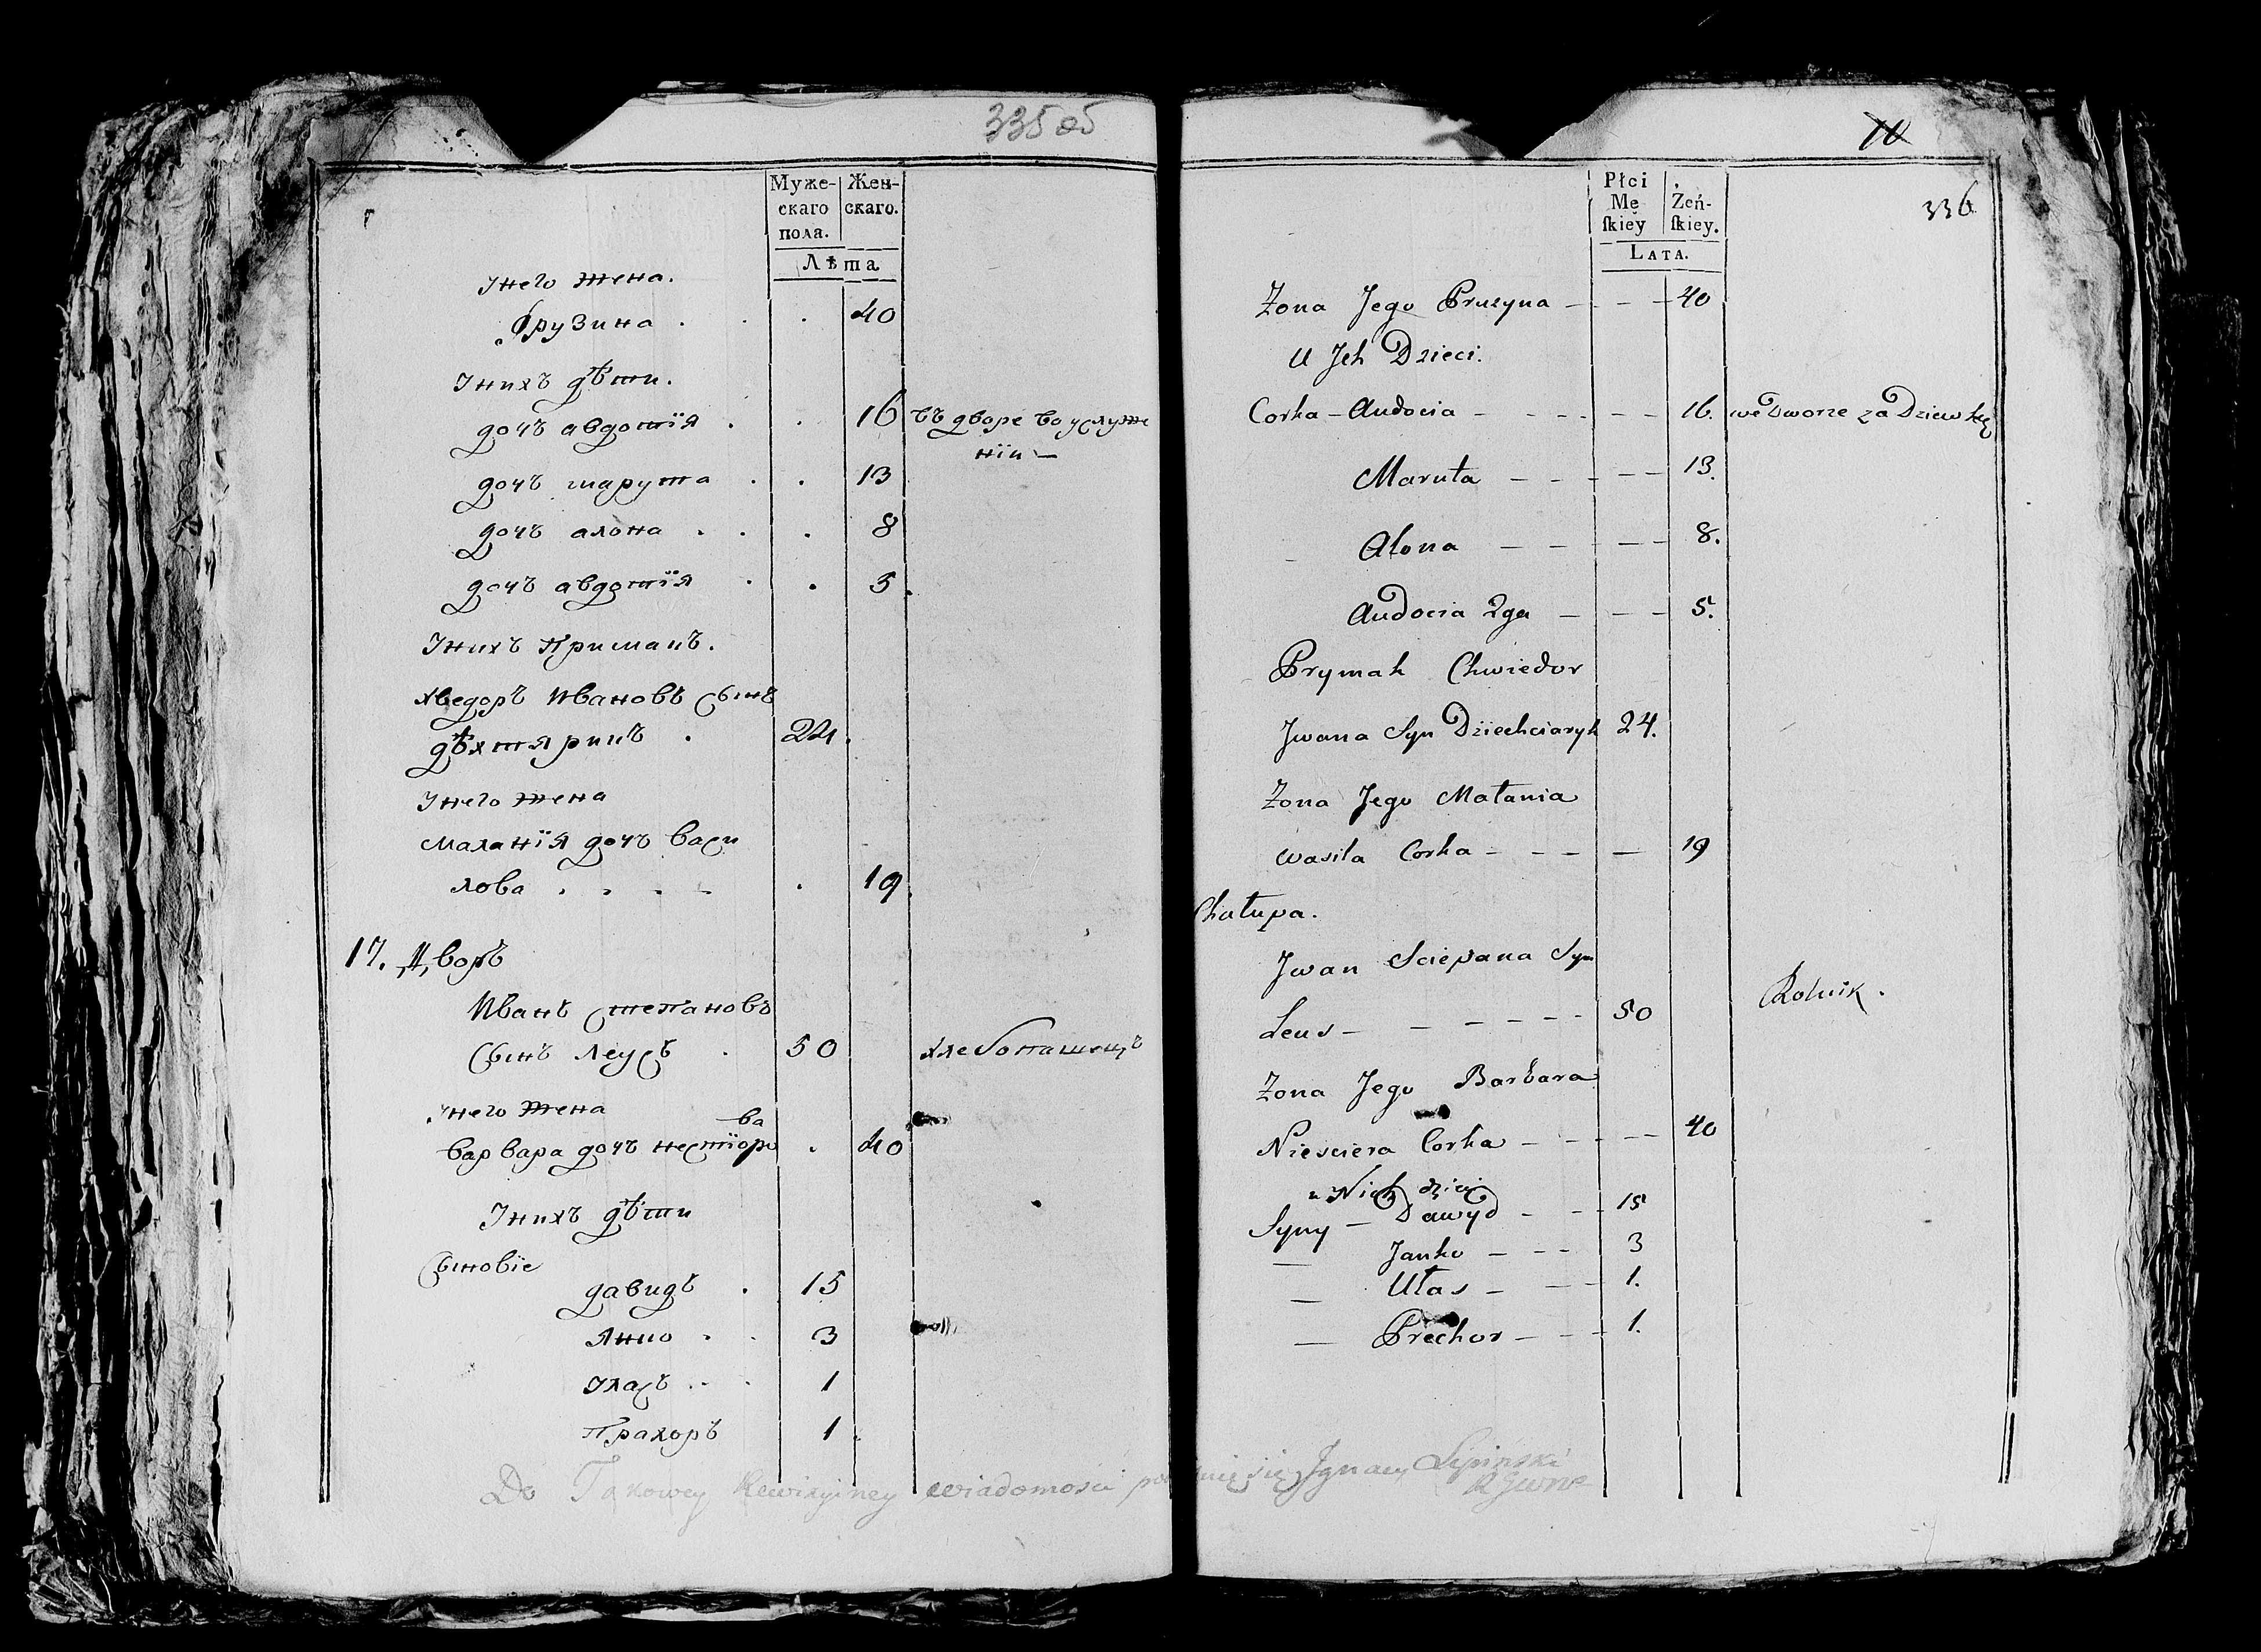 335 об
Муже-
скаго
пола.
Жен-
скаго.
Лѣта
Унего жена.
Фрузина . . . 40
Унихъ дѣти.
дочъ авдотїя . . 16 въ дворе воуслуже
нїи —
дочъ марута . . 13
дочъ алона . . . 8
дочъ авдотїя . . 5.
Унихъ Примакъ.
хведоръ Ивановъ сынъ
дѣхтярикъ . 24.
Унего жена
маланїя дочъ васи
лова . . . . . 19.
17. Дворъ
Иванъ степановъ
сынъ леусъ . 50 хлебопашецъ
Унего жена
ва
варвара дочъ нестїоро . 40
Унихъ дѣти
сыновїе
давидъ . 15
Янко . . 3
Уласъ . . . 1
Прахоръ 1.
Do Takowey Rewizyiney wiadomości
10
336
Płci
Mę
ſkiey
Żeń-
ſkiey.
LATA.
Zona Jego Pruzyna — — — 40
U Jch Dzieci.
Corka — Audocia — — — — — 16. we Dworze za Dziewkę
Maruta — — — — — 13.
Ałona — — — — — 8.
Audocia 2ga — — — — 5.
Prymak Chwiedor
Jwana Syn Dziechciaryk 24.
Zona Jego Małania
Wasila Corka — — — — 19
Chałupa.
Jwan Sciepana Syn
Leus — — — — — — 50 Rolnik.
Zona Jego Barbara
Niesciera Corka — — — — 40
u Nich dzieci
Syny — Dawyd — — — 15
— Janko — — — 3
— Ułas — — — 1.
— Prechor — — — 1.
się Jgnacy Lipinski